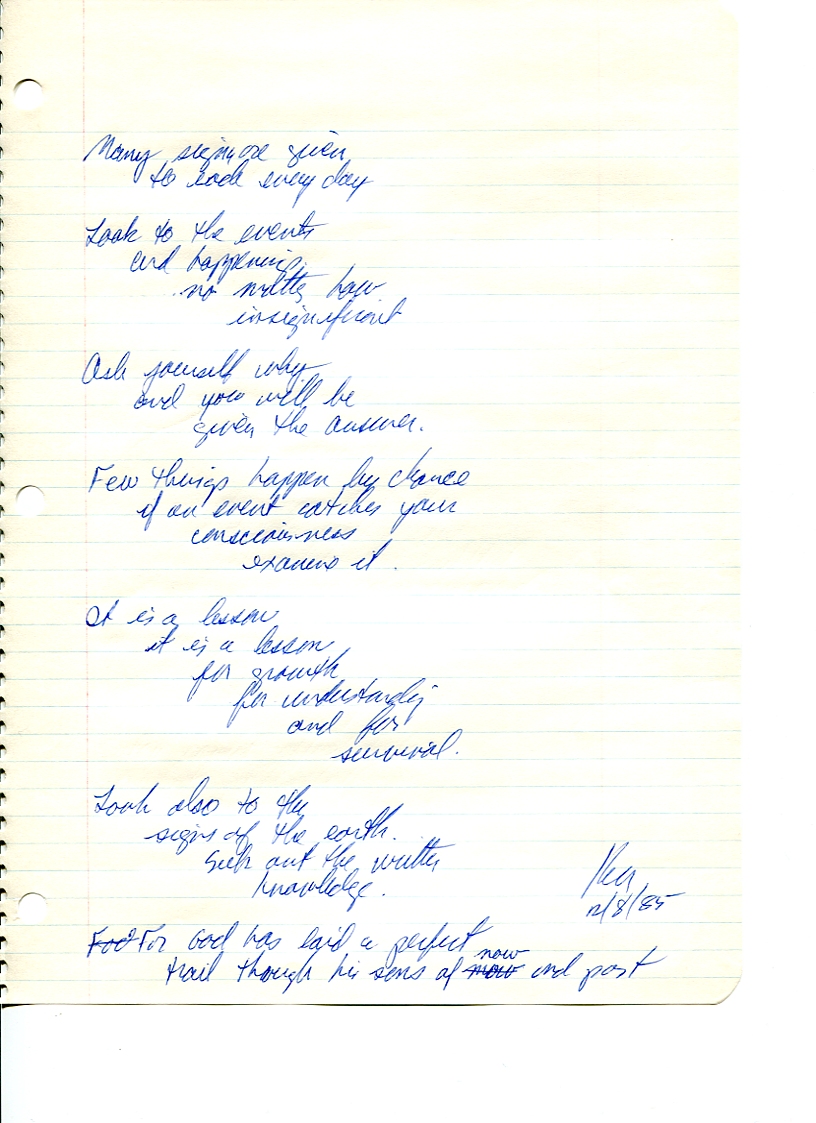 Many signs are given
to each every day
Look to the events
and happening
no matter how
insignificant
Ask yourself why
and you will be
given the answer.
Few things happen by chance
if an event catches your
consciousness
examine it.
It is a lesson
it is a lesson
for growth
for understanding
and for
survival.
Look also to the
signs of the earth.
Seek out the written
knowledge.
Ken
12/8/85
For God has laid a perfect
now
trail through his sons of and past